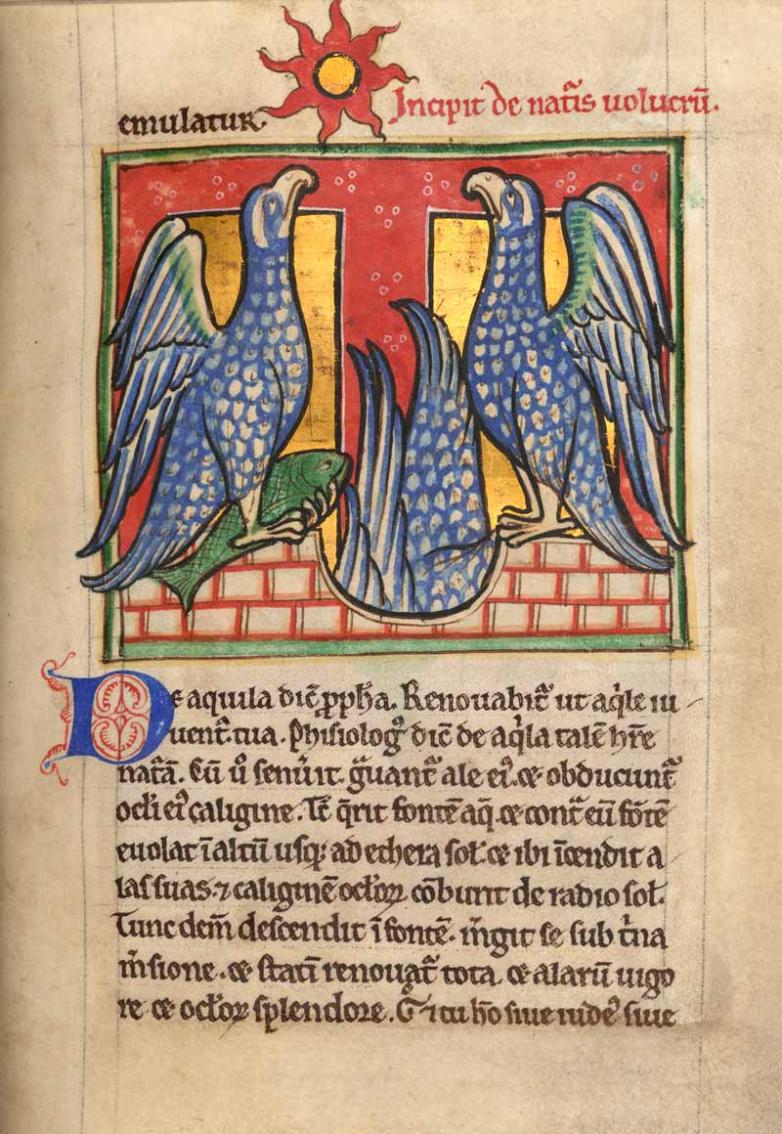 emulatur.
Incipit de nat̃is uolucrũ.
De aquila dic̃ ꝓph̃a. Renouabit̃ ut aq̍le iu
uent̃. tua. Phisiologꝰ dic̃ de aq̍la talẽ hr̃e
nat̃ã. Cũ ũ senuit. g̃uant̃ ale eiꝰ. ⁊ obducunt̃
oc̃li eiꝰ caligine. Tc̃ q̃rit fontẽ aq̃. ⁊ cont̃ eũ fõtẽ
euolat ĩ altũ usq; ad ethera sol̃. ⁊ ibi ĩcendit a
las suas. ⁊ caliginẽ ocl̃oꝝ cõburit de radio sol̃.
Tunc dem̃ descendit ĩ fontẽ. m̃git se sub t̍na
m̃sione. ⁊ statĩ renouat̃ tota. ⁊ alarũ uigo
re ⁊ ocl̃oꝝ splendore. G̊ ⁊ tu hõ siue iudeꝰ siue